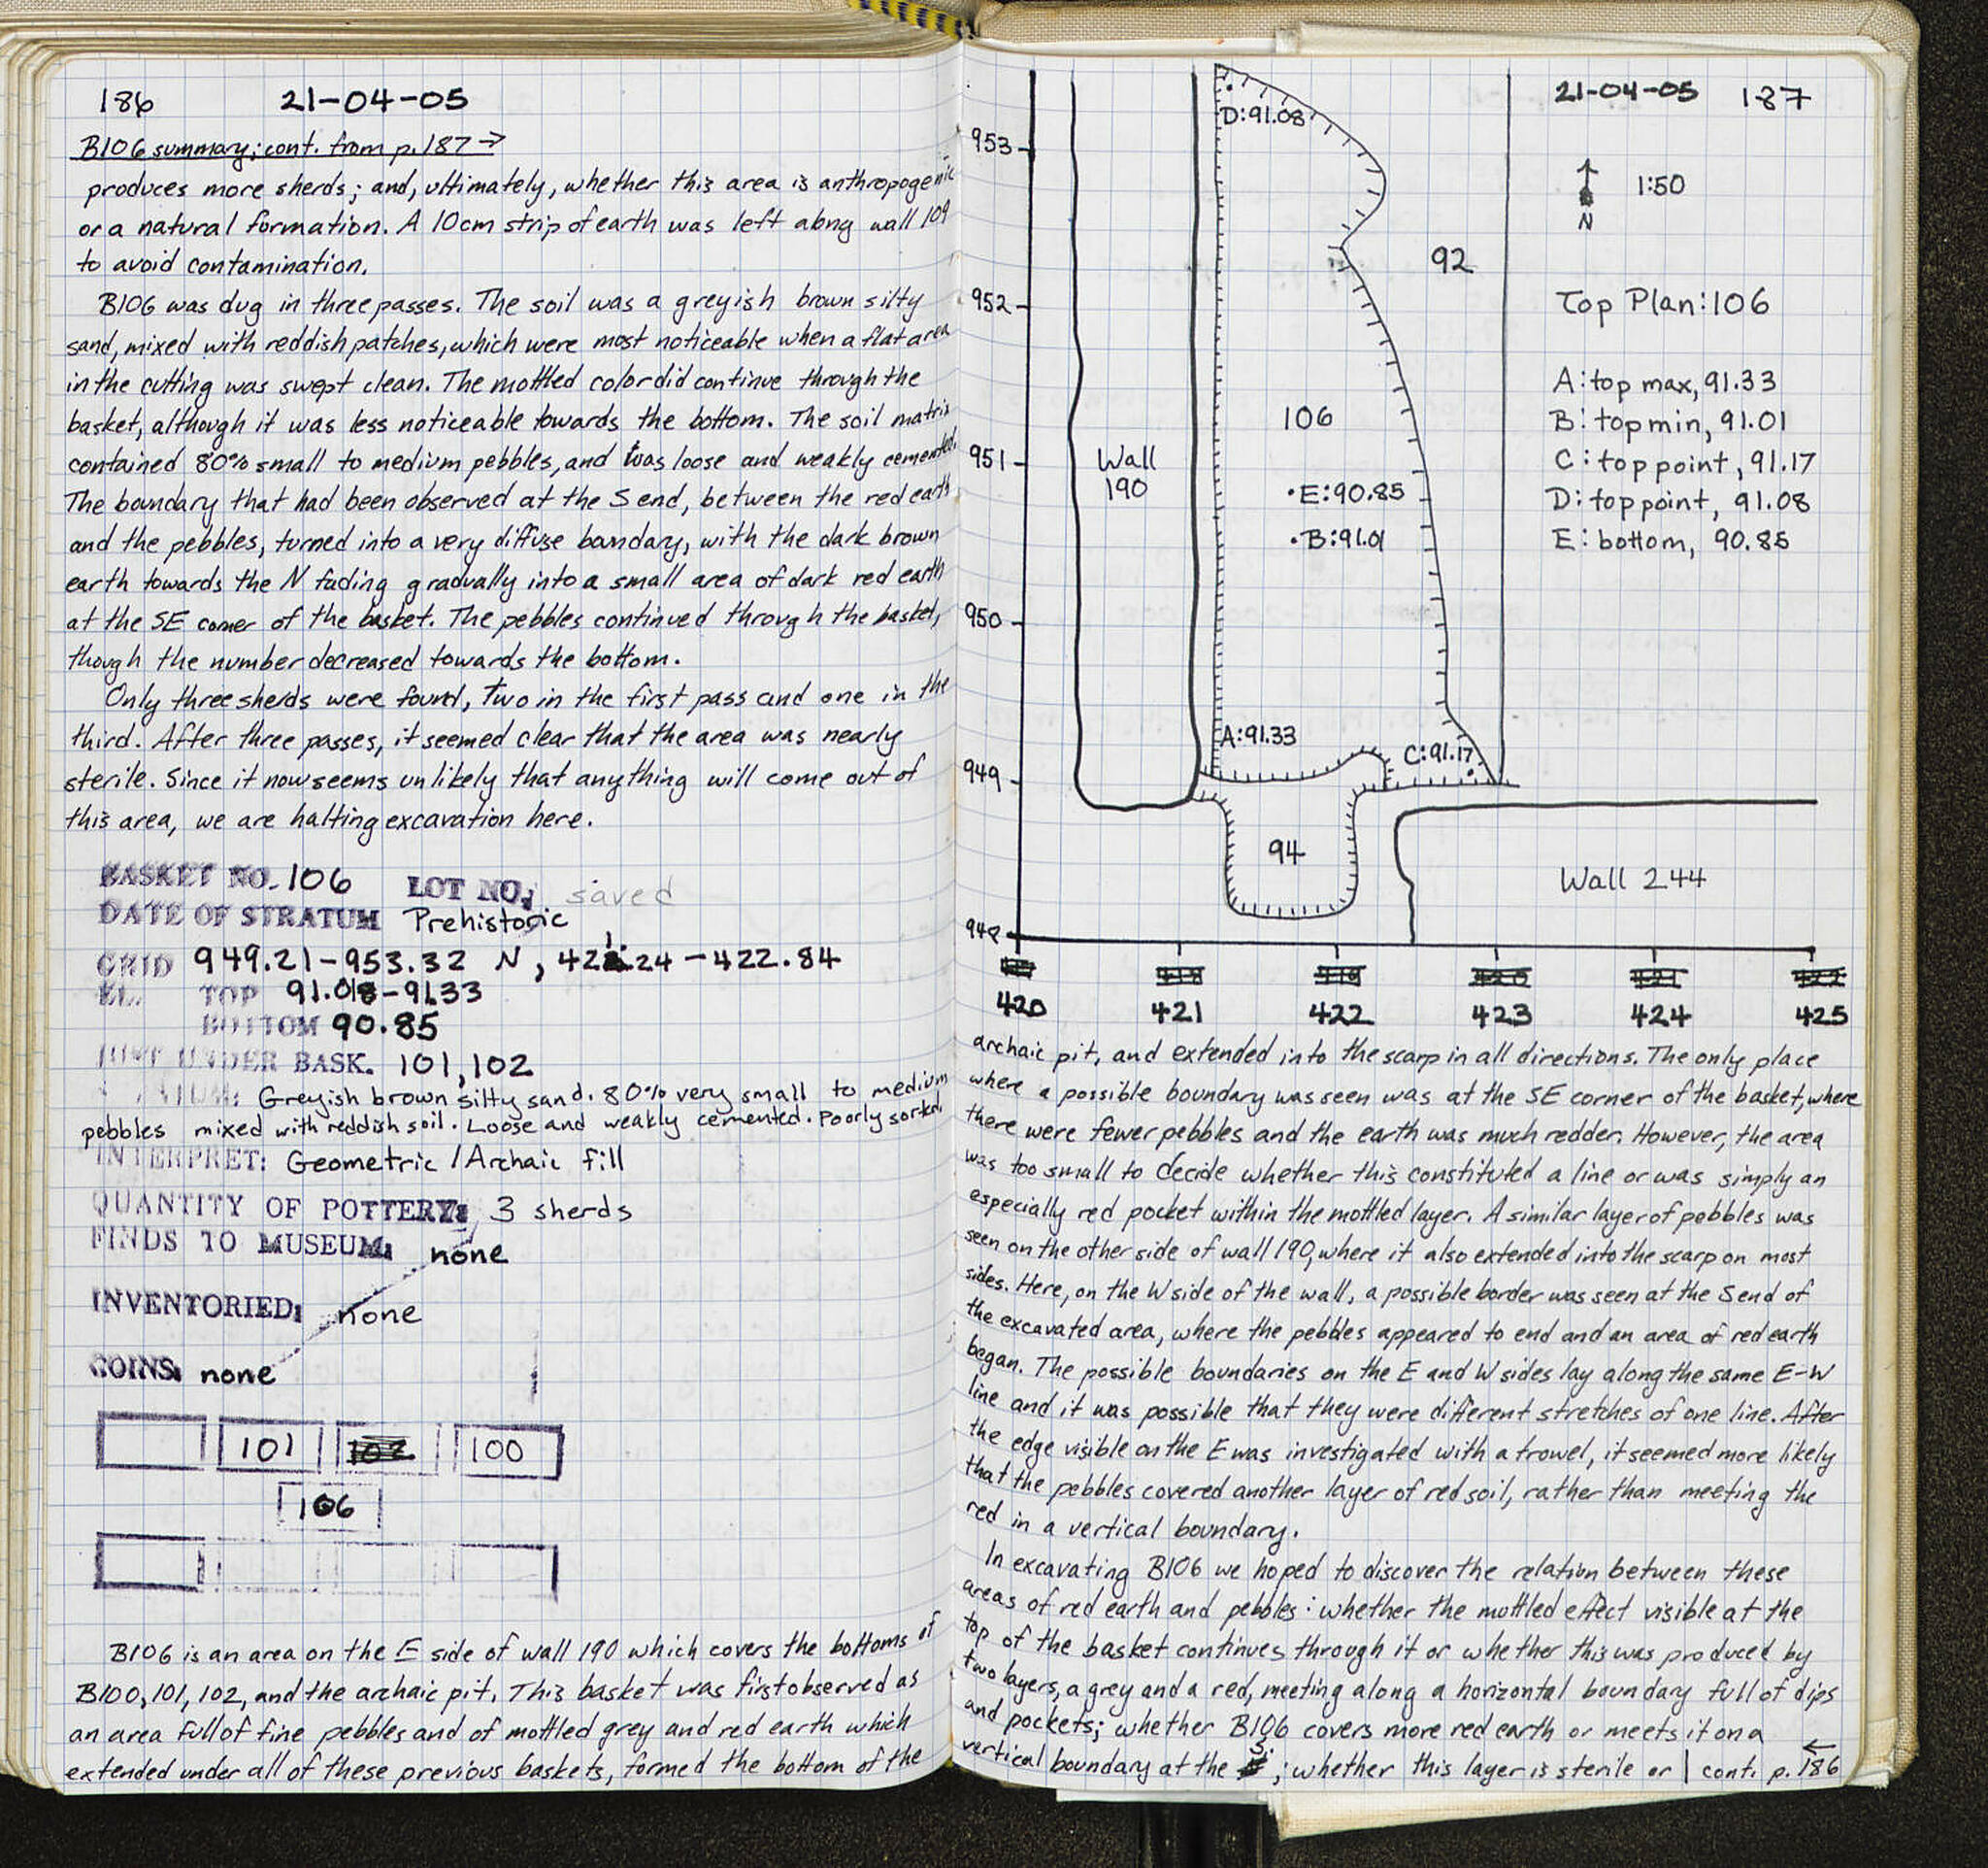 186 21-04-05
B106 summary; cont. from p. 187 →
produces more sherds; and, ultimately, whether this area is anthropogenic
or a natural formation. A 10cm strip of earth was left along wall 109
to avoid contamination.
B106 was dug in three passes. The soil was a greyish brown silty
sand, mixed with reddish patches, which were most noticeable when a flat area
in the cutting was swept clean. The mottled color did continue through the
basket, although it was less noticeable towards the bottom. The soil matrix
contained 80% small to medium pebbles, and was loose and weakly cemented.
The boundary that had been observed at the S end, between the red earth
and the pebbles, turned into a very diffuse boundary, with the dark brown
earth towards the N fading gradually into a small area of dark red earth
at the SE corner of the basket. The pebbles continued through the basket,
though the number decreased towards the bottom.
Only three sherds were found, two in the first pass and one in the
third. After three passes, it seemed clear that the area was nearly
sterile. Since it now seems unlikely that anything will come out of
this area, we are halting excavation here.
BASKET NO. 106 LOT NO. saved
DATE OF STRATUM Prehistoric
GRID 949.21-953.32 N, 421.24-422.84
EL. TOP 91.08-91.33
BOTTOM 90.85
JUST UNDER BASK. 101, 102
STRATUM: Greyish brown silty sand. 80% very small to medium
pebbles mixed with reddish soil. Loose and weakly cemented. Poorly sorted.
INTERPRET: Geometric / Archaic fill
QUANTITY OF POTTERY: 3 sherds
FINDS TO MUSEUM: none
INVENTORIED: none
COINS: none
101 102 100
106
B106 is an area on the E side of wall 190 which covers the bottoms of
B100, 101, 102, and the archaic pit. This basket was first observed as
an area full of fine pebbles and of mottled grey and red earth which
extended under all of these previous baskets, formed the bottom of the
21-04-05 187
N
1:50
Top Plan: 106
A: top max, 91.33
B: top min, 91.01
C: top point, 91.17
D: top point, 91.08
E: bottom, 90.85
953
952
951
950
949
948
D: 91.08
92
106
Wall
190
E: 90.85
B: 91.01
A: 91.33
C: 91.17
94
Wall 244
418 419 420 421 422
420 421 422 423 424 425
archaic pit, and extended into the scarp in all directions. The only place
where a possible boundary was seen was at the SE corner of the basket, where
there were fewer pebbles and the earth was much redder. However, the area
was too small to decide whether this constituted a line or was simply an
especially red pocket within the mottled layer. A similar layer of pebbles was
seen on the other side of wall 190, where it also extended into the scarp on most
sides. Here, on the W side of the wall, a possible border was seen at the S end of
the excavated area, where the pebbles appeared to end and an area of red earth
began. The possible boundaries on the E and W sides lay along the same E-W
line and it was possible that they were different stretches of one line. After
the edge visible on the E was investigated with a trowel, it seemed more likely
that the pebbles covered another layer of red soil, rather than meeting the
red in a vertical boundary.
In excavating B106 we hoped to discover the relation between these
areas of red earth and pebbles: whether the mottled effect visible at the
top of the basket continues through it or whether this was produced by
two layers, a grey and a red, meeting along a horizontal boundary full of dips
and pockets; whether B106 covers more red earth or meets it on a
vertical boundary at the S; whether this layer is sterile or | cont. p. 186 ←